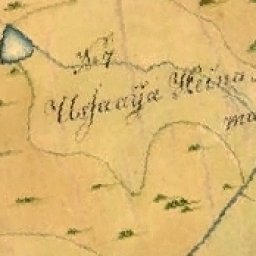 № 7
Uhjaaija Heina
ma